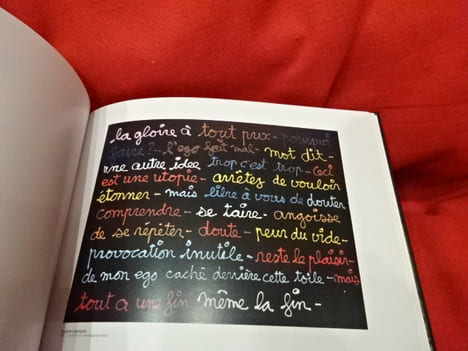 la gloire à tout prix - pourquoi
faire ?.. l'ego fait mal - mot dit -
une autre idee trop c'est trop - ceci
est une utopie - arrêtez de vouloir
étonner - mais libre à vous de douter
comprendre - se taire - angoisse
de se répéter - doute - peur du vide -
provocation inutile - reste le plaisir -
de mon ego caché derrière cette toile - mais
tout a une fin même la fin -